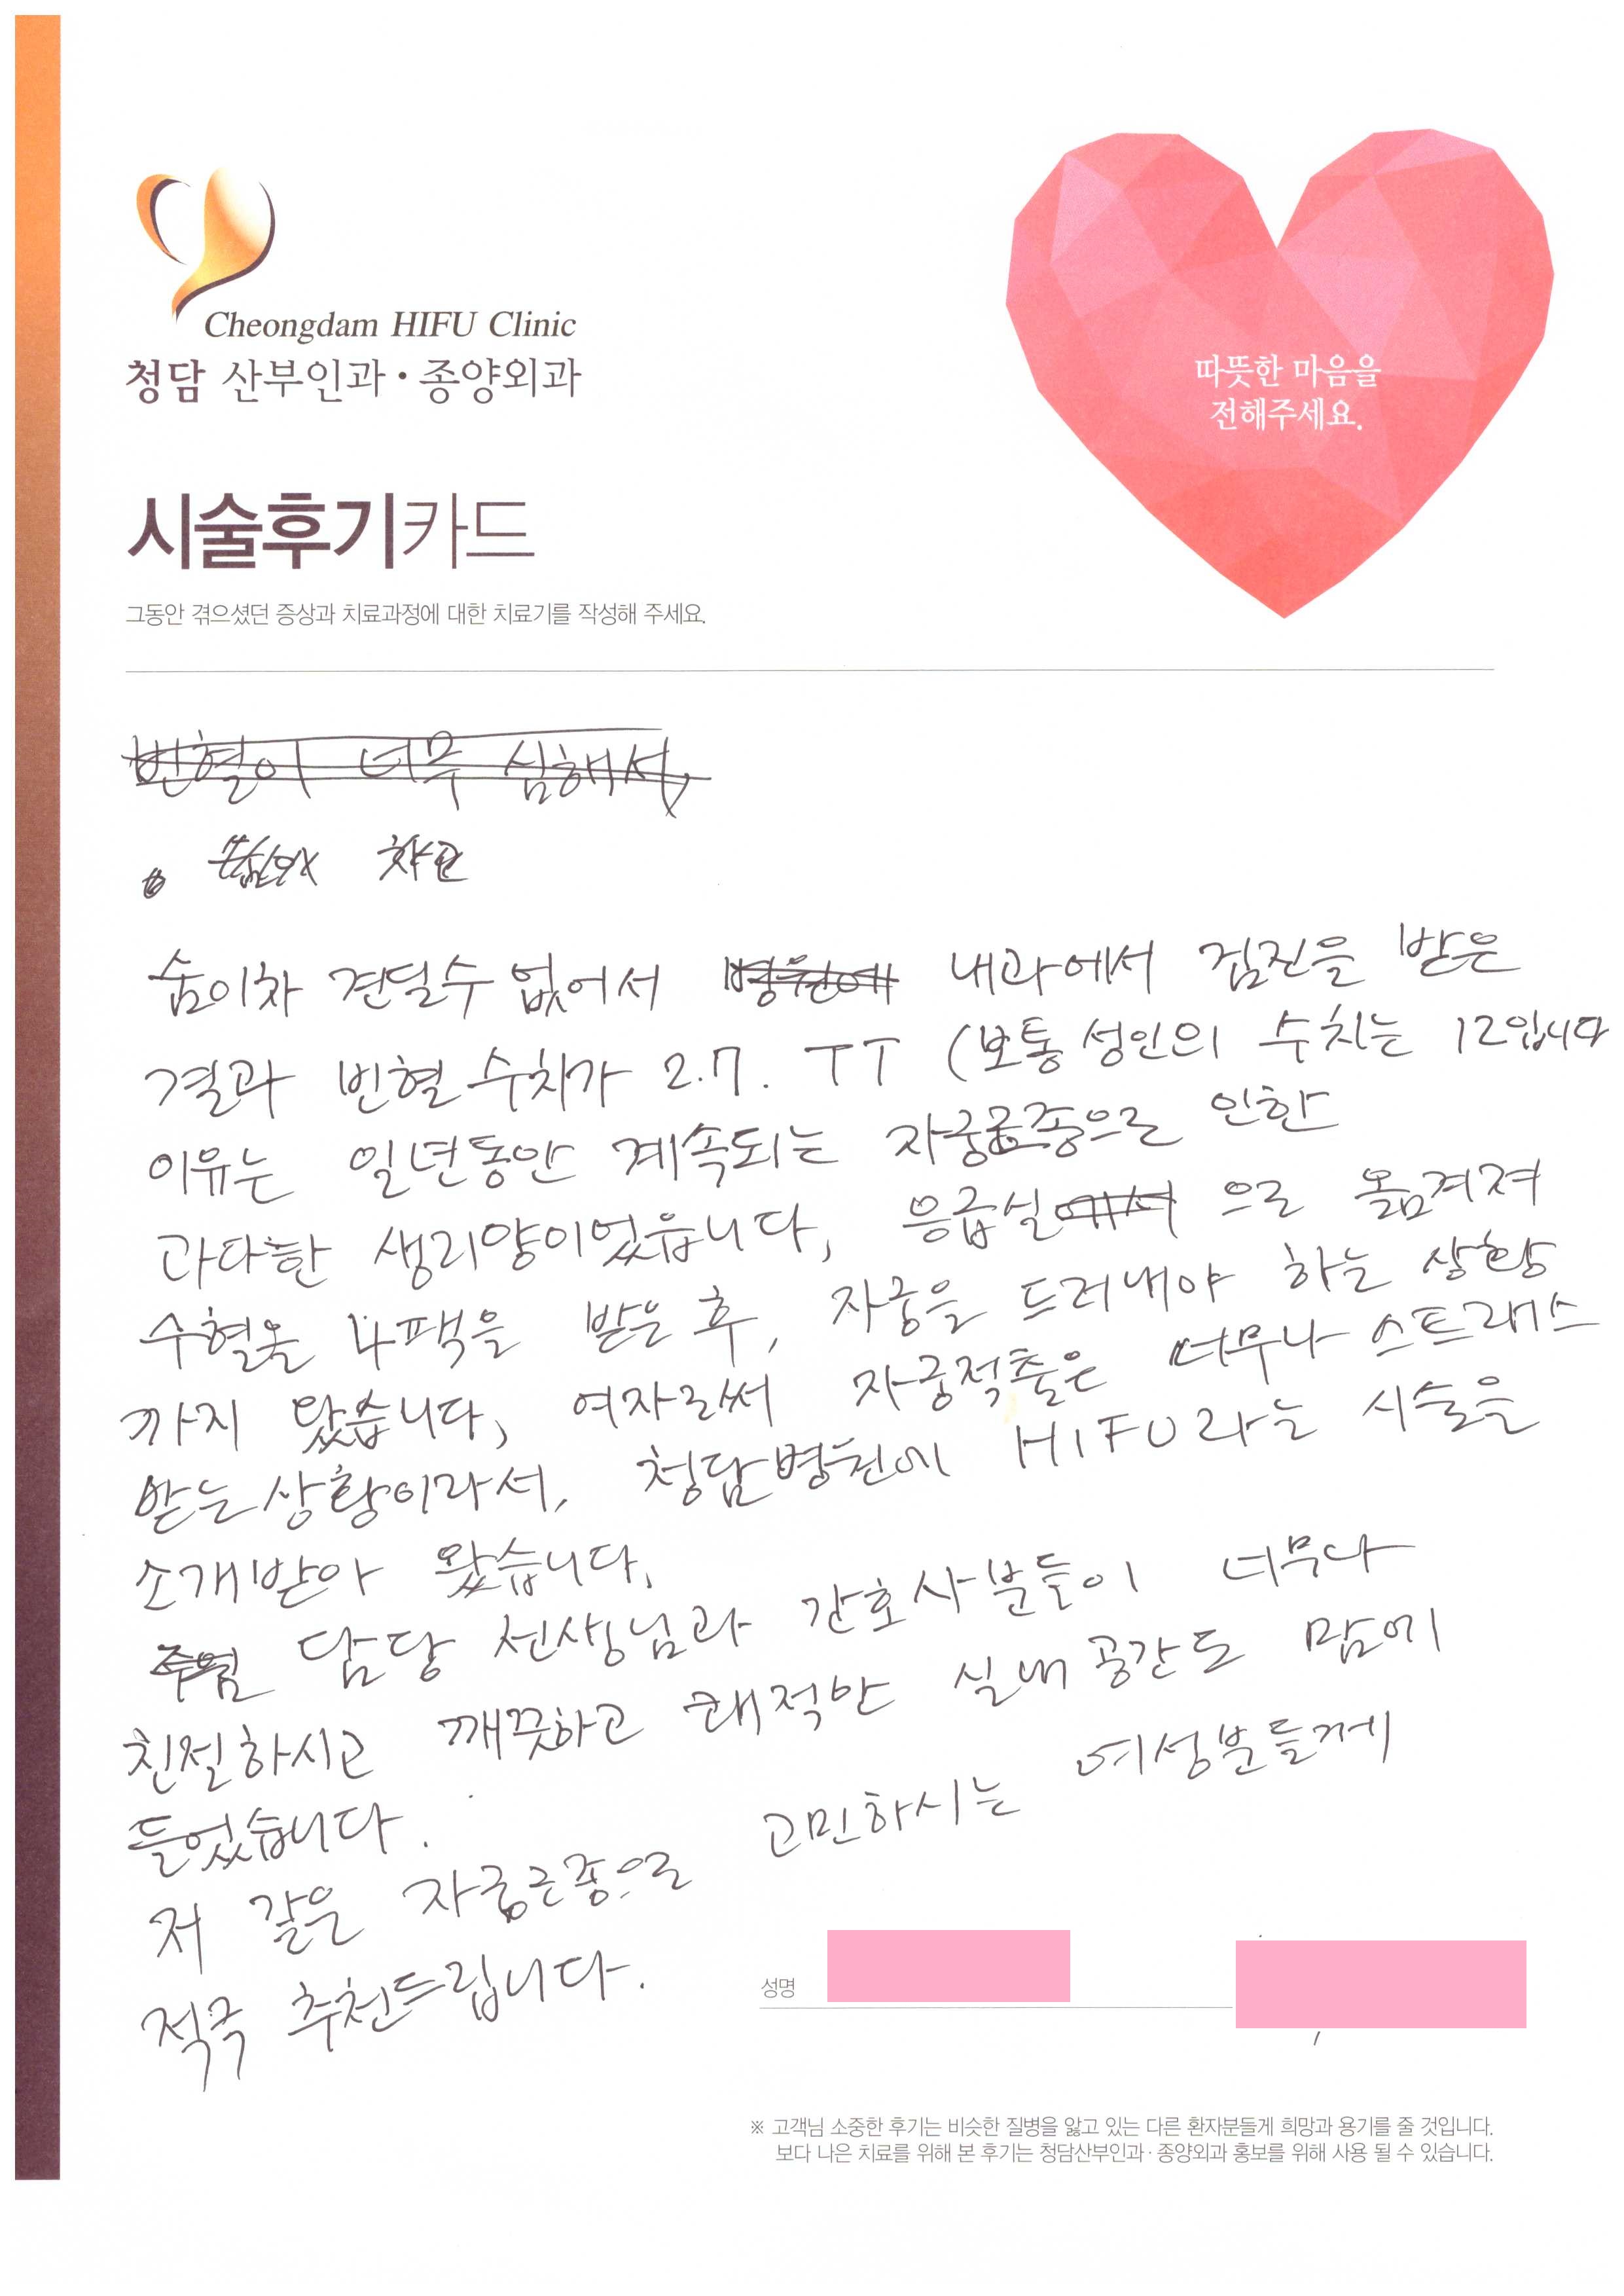 Cheongdam HIFU Clinic
청담 산부인과·종양외과
따뜻한 마음을
전해주세요.
시술후기카드
그동안 겪으셨던 증상과 치료과정에 대한 치료기를 작성해 주세요.
빈혈이 너무 심해서,
숨이차 견딜수 없어서 병원에 내과에서 검진을 받은
결과 빈혈 수치가 2.7. TT (보통 성인의 수치는 12입니다
이유는 일년동안 계속되는 자궁근종으로 인한
과다한 생리양이었읍니다, 응급실에서 으로 옮겨져
수혈을 4팩을 받은 후, 자궁을 드러내야 하는 상황
까지 왔습니다, 여자로써 자궁적출은 너무나 스트래스
받는상황이라서, 청담병원에 HIFU라는 시술을
소개받아 왔습니다,
담당 선생님과 간호사분들이 너무나
친절하시고 깨끗하고 쾌적한 실내공간도 맘에
들었습니다.
저 같은 자궁근종으로 고민하시는 여성분들께
적극 추천드립니다.
성명
※ 고객님 소중한 후기는 비슷한 질병을 앓고 있는 다른 환자분들게 희망과 용기를 줄 것입니다.
보다 나은 치료를 위해 본 후기는 청담산부인과·종양외과 홍보를 위해 사용 될 수 있습니다.